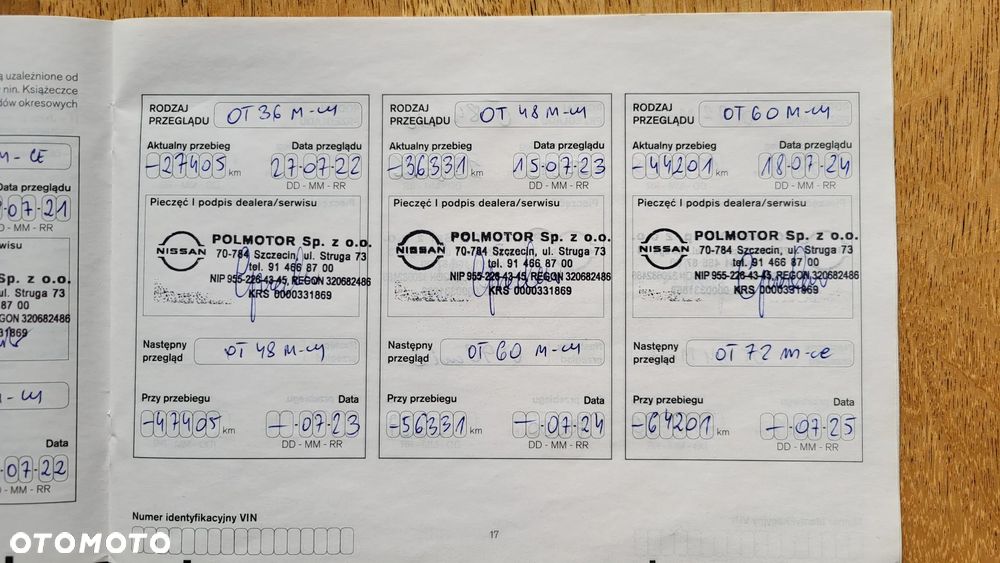 ą uzależnione od
nin. Książeczce
dów okresowych
M-CE
Data przeglądu
07-21
D - MM - RR
serwisu
Sp. z o.o.
ul. Struga 73
87 00
REGON 320682486
31869
Data
07-22
- MM - RR
RODZAJ PRZEGLĄDU OT 36 M-cy
Aktualny przebieg Data przeglądu
-27405 km 27-07-22
DD - MM - RR
Pieczęć I podpis dealera/serwisu
NISSAN
POLMOTOR Sp. z o.o.
70-784 Szczecin, ul. Struga 73
tel. 91 466 87 00
NIP 955-226-43-45, REGON 320682486
KRS 0000331869
Następny przegląd OT 48 M-cy
Przy przebiegu Data
-47405 km -07-23
DD - MM - RR
RODZAJ PRZEGLĄDU OT 48 M-cy
Aktualny przebieg Data przeglądu
-36331 km 15-07-23
DD - MM - RR
Pieczęć I podpis dealera/serwisu
NISSAN
POLMOTOR Sp. z o.o.
70-784 Szczecin, ul. Struga 73
tel. 91 466 87 00
NIP 955-226-43-45, REGON 320682486
KRS 0000331869
Następny przegląd OT 60 M-cy
Przy przebiegu Data
-56331 km -07-24
DD - MM - RR
RODZAJ PRZEGLĄDU OT 60 M-cy
Aktualny przebieg Data przeglądu
-44201 km 18-07-24
DD - MM - RR
Pieczęć I podpis dealera/serwisu
NISSAN
POLMOTOR Sp. z o.o.
70-784 Szczecin, ul. Struga 73
tel. 91 466 87 00
NIP 955-226-43-45, REGON 320682486
KRS 0000331869
Następny przegląd OT 72 m-ce
Przy przebiegu Data
-64201 km -07-25
DD - MM - RR
Numer identyfikacyjny VIN
17
OTOMOTO